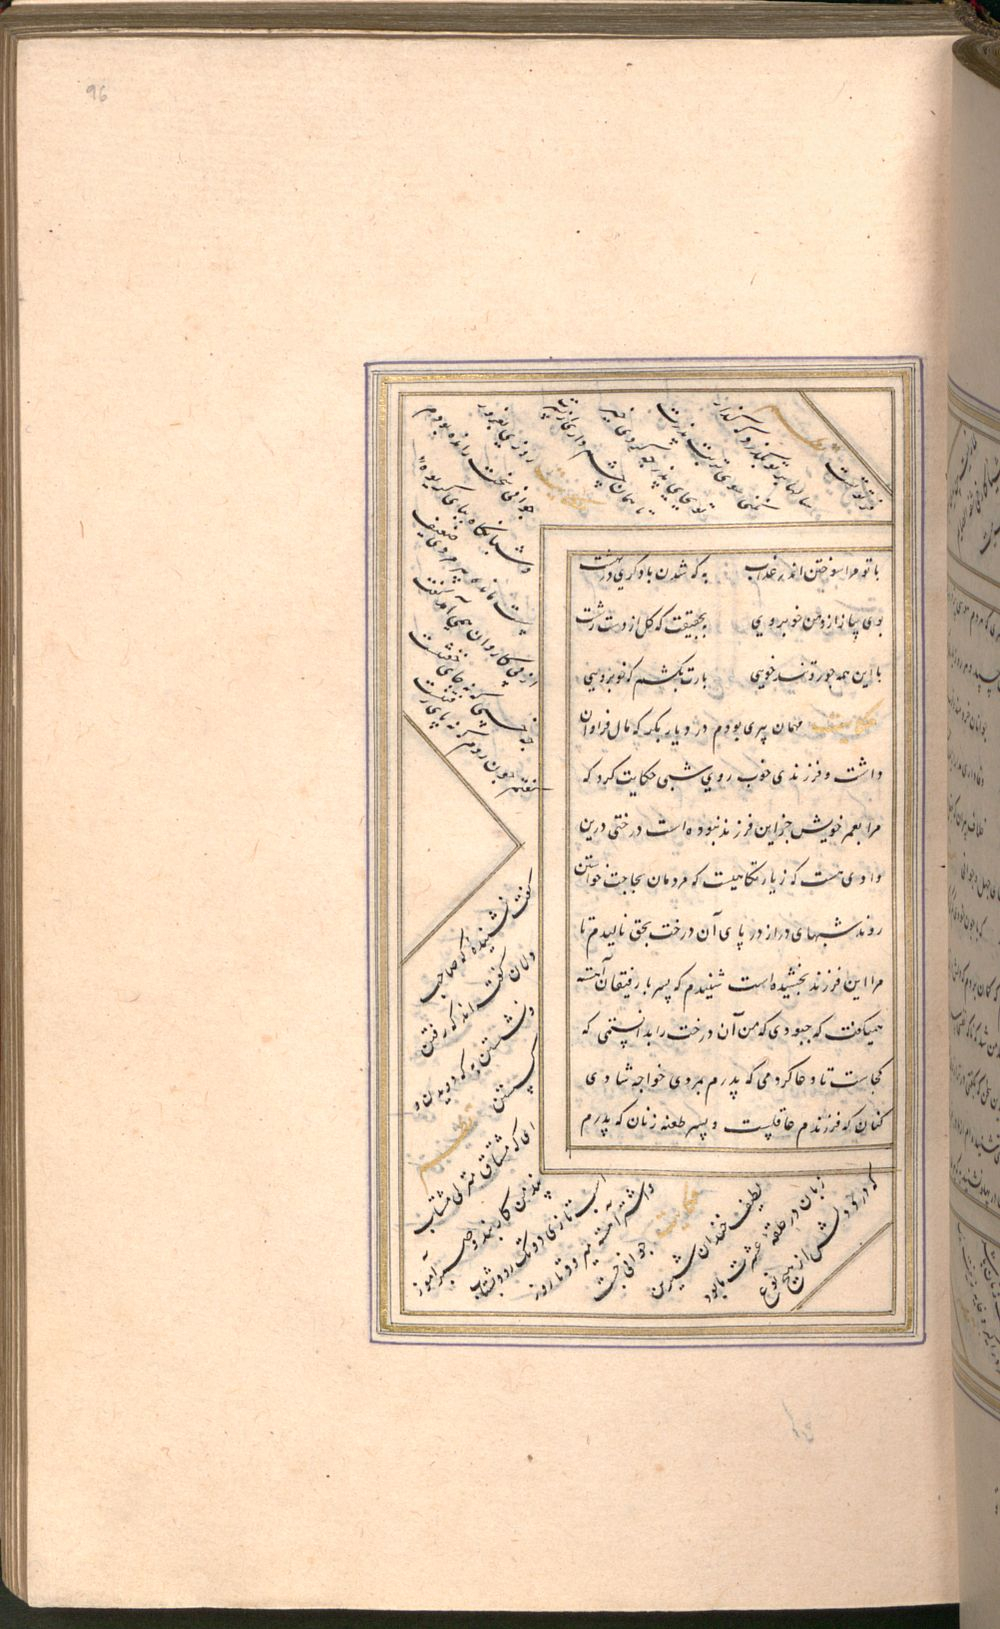 96
با تو مرا سوختن اندر عذاب به که شدن با دگری در بهشت
بوی پیاز از دهن خوبروی بحقیقت که گل از دست زشت
با این همه جور و تند خویی بارت بکشم که خوبرویی
حکایت مهمان پیری بودم در دیار بکر که مال فراوان
داشت و فرزندی خوب روی شبی حکایت کرد که
مرا بعمر خویش جز این فرزند نبوده است درختی درین
وادی هست که زیارتگاهیست که مردمان بحاجت خواستن
روند شبهای دراز در پای آن درخت بحق نالیدم تا
مرا این فرزند بخشیده است شنیدم که پسر با رفیقان آهسته
همیگفت که چبودی که من آن درخت را بدانستمی که
کجاست تا دعا کردمی که پدرم بمردی خواجه شادی
کنان که فرزندم عاقلست و پسر طعنه زنان که پدرم
فرتوتست
قطعه
سالها بر تو بگذرد که گذار
نکنی سوی تربت پدرت
تو بجای پدر چه کردی خیر
تا همان چشم داری از پسرت
حکایت روزی بغرور
جوانی سخت رانده بودم
و شبانگاه بپای کریوه
سست مانده پیر مردی ضعیف
از پی کاروان همی آمد گفت
چه خسپی که نه جای خفتنست
گفتم چون روم که نه پای رفتنست
گفت نشنیده که صاحب
دلان گفته اند که رفتن
و نشستن به که دویدن و
گسستن
قطعه
ای که مشتاق منزلی مشتاب
پند من کار بند و صبر آموز
اسب تازی دو تک رود بشتاب
واشتر آهسته میرود تا روز
حکایت جوانی چست
لطیف خندان شیرین
زبان در حلقه عشرت ما بود
که در دلش از هیچ نوع